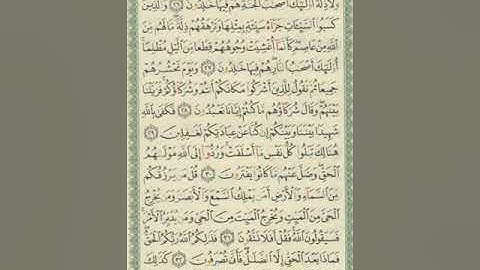 وَلَا ذِلَّةٌ أُوْلَٰٓئِكَ أَصْحَٰبُ ٱلْجَنَّةِ هُمْ فِيهَا خَٰلِدُونَ ٢٦ وَٱلَّذِينَ
كَسَبُوا۟ ٱلسَّيِّـَٔاتِ جَزَآءُ سَيِّئَةٍۭ بِمِثْلِهَا وَتَرْهَقُهُمْ ذِلَّةٌ مَّا لَهُم مِّنَ
ٱللَّهِ مِنْ عَاصِمٍ كَأَنَّمَآ أُغْشِيَتْ وُجُوهُهُمْ قِطَعًا مِّنَ ٱلَّيْلِ مُظْلِمًا
أُوْلَٰٓئِكَ أَصْحَٰبُ ٱلنَّارِ هُمْ فِيهَا خَٰلِدُونَ ٢٧ وَيَوْمَ نَحْشُرُهُمْ
جَمِيعًا ثُمَّ نَقُولُ لِلَّذِينَ أَشْرَكُوا۟ مَكَانَكُمْ أَنتُمْ وَشُرَكَآؤُكُمْ فَزَيَّلْنَا
بَيْنَهُمْ وَقَالَ شُرَكَآؤُهُم مَّا كُنتُمْ إِيَّانَا تَعْبُدُونَ ٢٨ فَكَفَىٰ بِٱللَّهِ
شَهِيدًۢا بَيْنَنَا وَبَيْنَكُمْ إِن كُنَّا عَنْ عِبَادَتِكُمْ لَغَٰفِلِينَ ٢٩
هُنَالِكَ تَبْلُوا۟ كُلُّ نَفْسٍ مَّآ أَسْلَفَتْ وَرُدُّوٓا۟ إِلَى ٱللَّهِ مَوْلَىٰهُمُ
ٱلْحَقِّ وَضَلَّ عَنْهُم مَّا كَانُوا۟ يَفْتَرُونَ ٣٠ قُلْ مَن يَرْزُقُكُم
مِّنَ ٱلسَّمَآءِ وَٱلْأَرْضِ أَمَّن يَمْلِكُ ٱلسَّمْعَ وَٱلْأَبْصَٰرَ وَمَن يُخْرِجُ
ٱلْحَيَّ مِنَ ٱلْمَيِّتِ وَيُخْرِجُ ٱلْمَيِّتَ مِنَ ٱلْحَيِّ وَمَن يُدَبِّرُ ٱلْأَمْرَ
فَسَيَقُولُونَ ٱللَّهُ فَقُلْ أَفَلَا تَتَّقُونَ ٣١ فَذَٰلِكُمُ ٱللَّهُ رَبُّكُمُ ٱلْحَقُّ
فَمَاذَا بَعْدَ ٱلْحَقِّ إِلَّا ٱلضَّلَٰلُ فَأَنَّىٰ تُصْرَفُونَ ٣٢ كَذَٰلِكَ